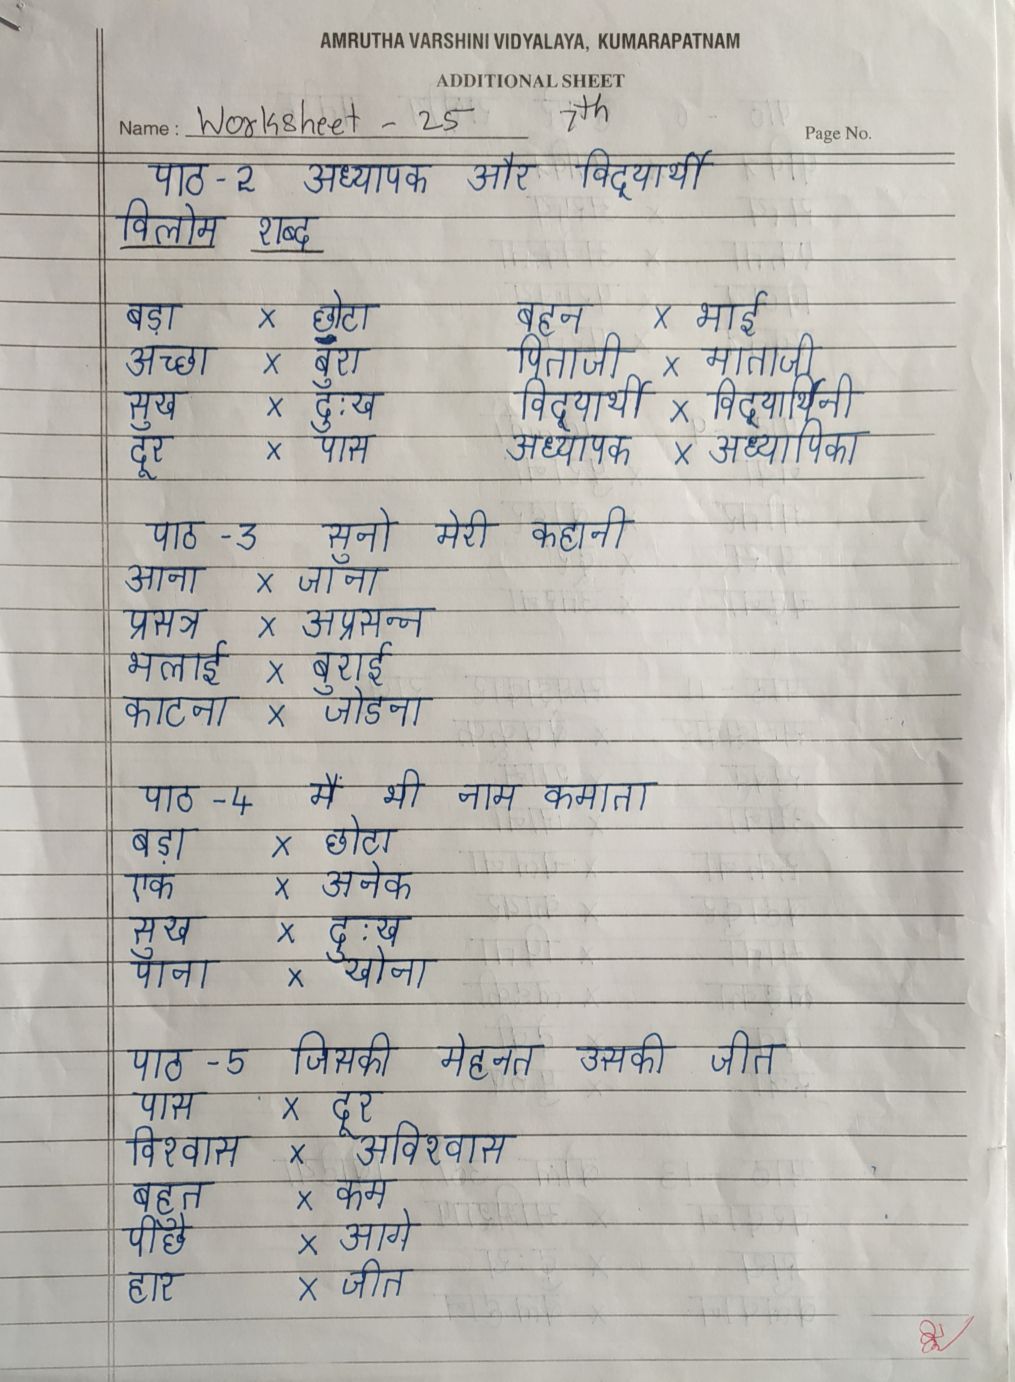 AMRUTHA VARSHINI VIDYALAYA, KUMARAPATNAM
ADDITIONAL SHEET
Name : Worksheet - 25 7th
Page No.
पाठ -2 अध्यापक और विद्यार्थी
विलोम शब्द
बड़ा x छोटा बहन x भाई
अच्छा x बुरा पिताजी x माताजी
सुख x दुःख विद्यार्थी x विद्यार्थिनी
दूर x पास अध्यापक x अध्यापिका
पाठ -3 सुनो मेरी कहानी
आना x जाना
प्रसत्र x अप्रसन्न
भलाई x बुराई
काटना x जोडना
पाठ -4 मैं भी नाम कमाता
बड़ा x छोटा
एक x अनेक
सुख x दुःख
पाना x खोना
पाठ -5 जिसकी मेहनत उसकी जीत
पास x दूर
विश्वास x अविश्वास
बहत x कम
पीछे x आगे
हार x जीत